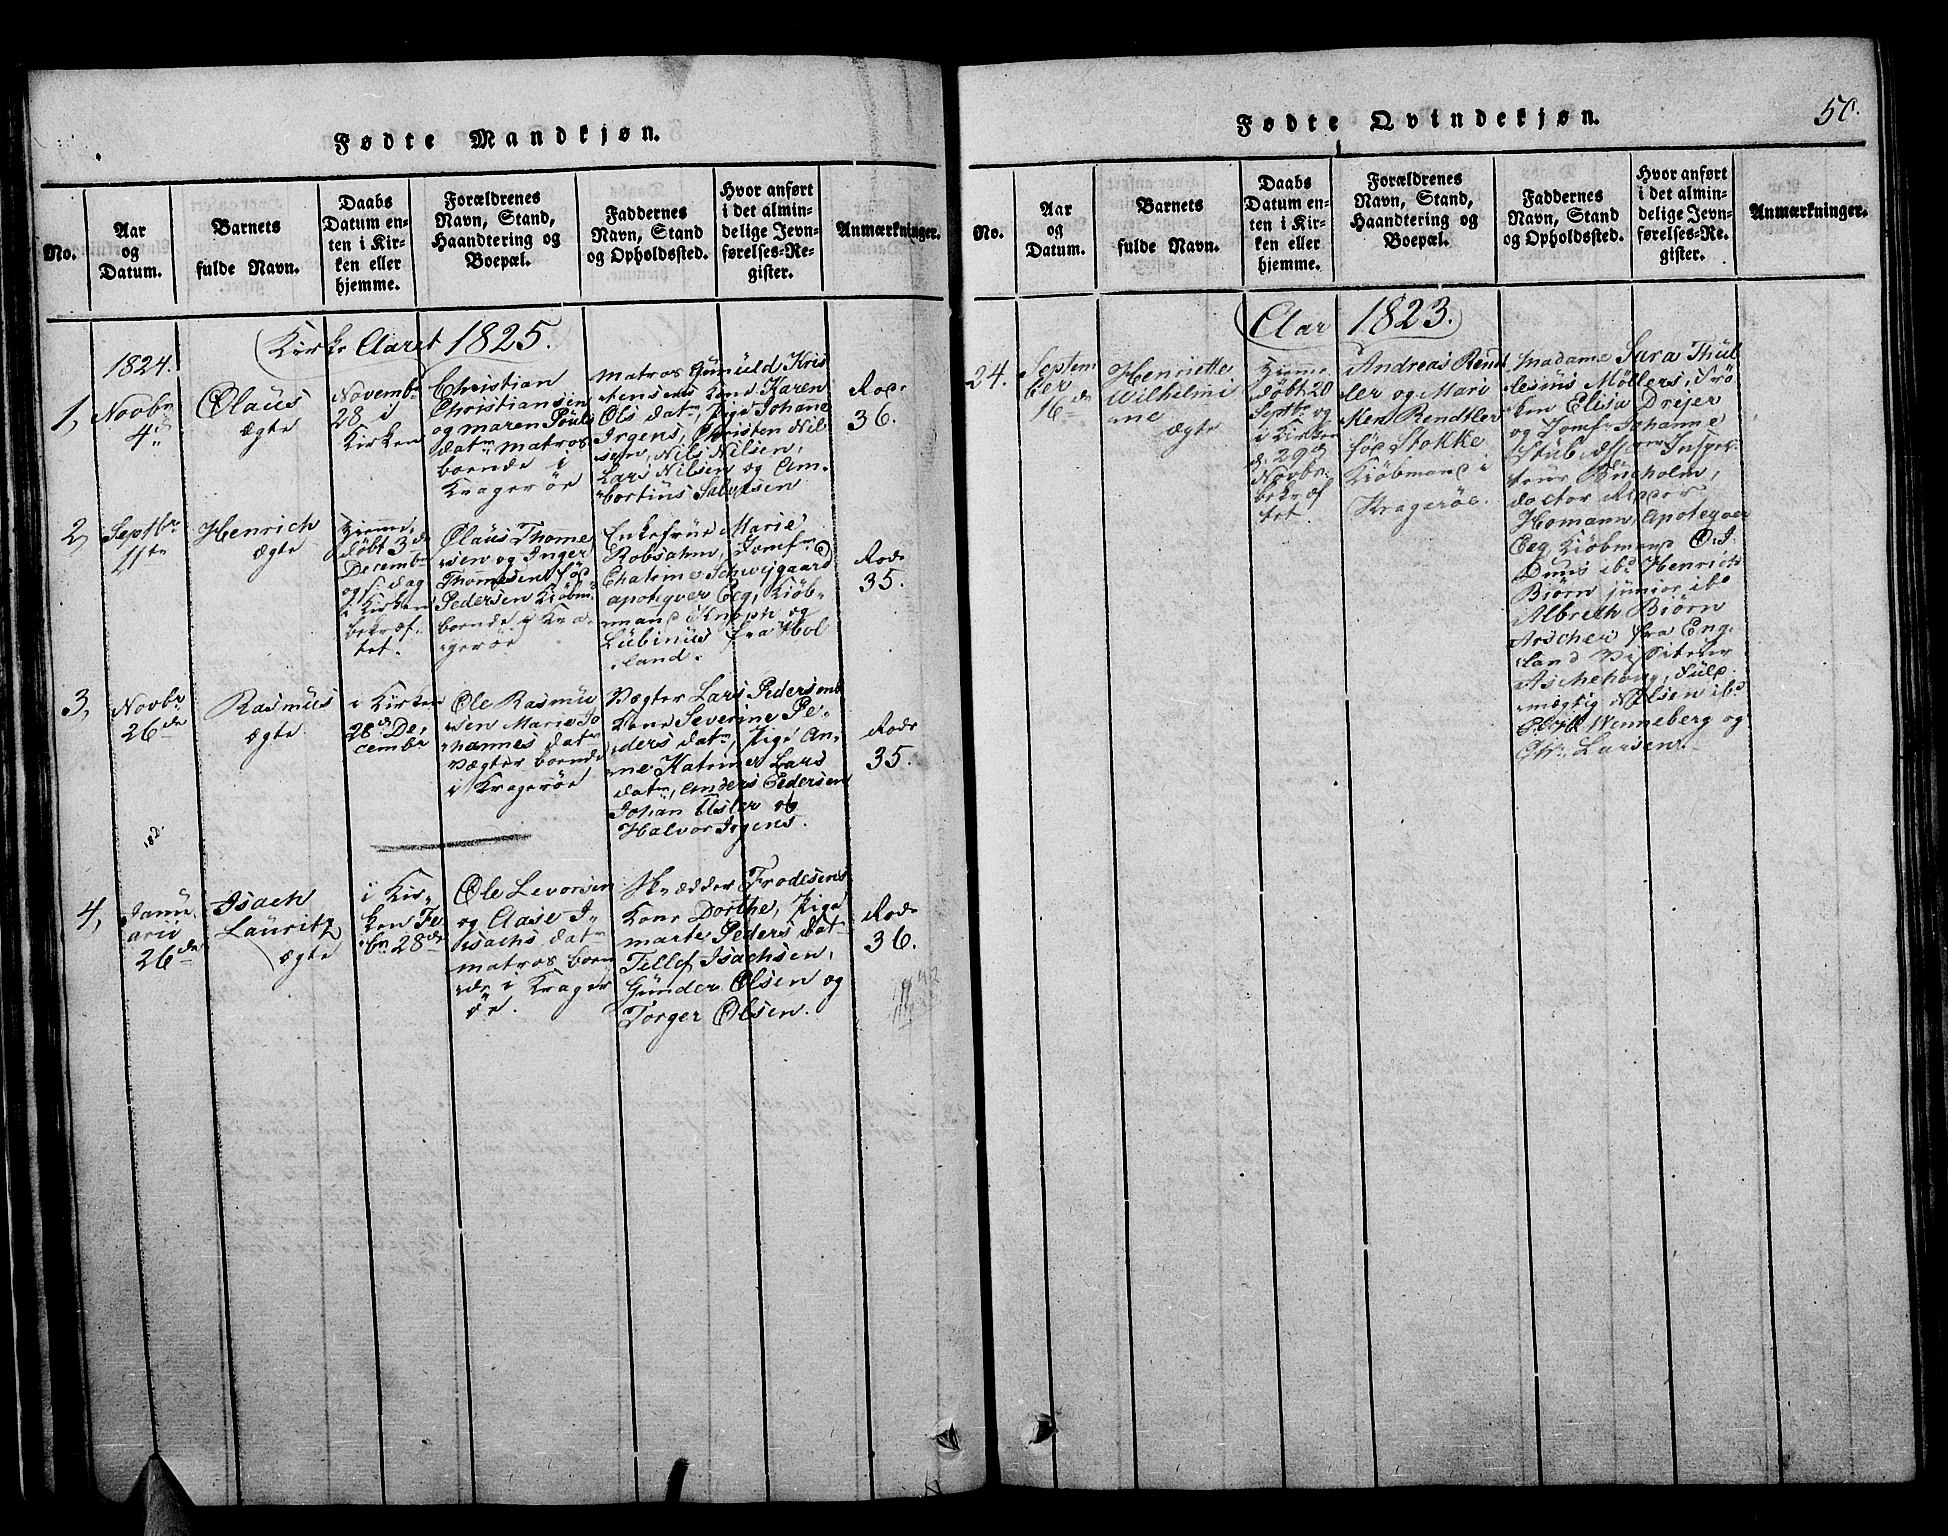 Fødte Mandkjøn.
No.
Aar
og
Datum.
Barnets
fulde Navn.
Daabs
Datum en-
ten i Kir-
ken eller
hjemme.
Forældrenes
Navn, Stand,
Haandtering og
Boepæl.
Faddernes
Navn, Stand
og Opholdssted.
Hvor anført
i det almin-
delige Jevn-
førelses-Re-
gister.
Anmærkninger.
Kirke Aaret 1825.
1824.
1,
Novbr
4de
Olaüs
ægte
Novembr
28 i
Kirken
Christian
Christiansen
og maren Pouls
datr matros
boende i
Kragerøe
matros Gunüld Kris
tensens Kone Karen
Ols datr, Pige Johane
Irgens, Christen Nil
sen, Nils Nilsen,
Lars Nilsen og Am-
bortiüs Salvesen
Rode
36.
2,
Septbr
11te
Henrich
ægte
Hjeme
døbt 3de
Decembr
og i dag
i Kirken
bekræf-
tet.
Olaüs Thome
sen og Inger
Thomesen fød
Pedersen Kiøbm
boende i Kra
gerøe
Enkefrüe Marie
Robsahm, Jomfr
Chatrine Schwejgaard
apoteqver Eeg, Kiøb-
mand Knoph og
Lübinüs fra Hol
land.
Rode
35.
3,
Novbr
26de
Rasmüs
ægte
i Kirken
28de De,
cembr
Ole Rasmü
sen Marie Jo
hannes datr
vægter boende
i Kragerøe
Vægter Lars Pedersens
Kone Severine Pe-
ders datr, Pige An-
ne Katrine Lars
datr, Anders Pedersen
Johan Üsler og
Halvor Irgens.
Rode
35.
182
4,
Janü
ario
26de
Isach
Laüritz
ægte
i Kir-
ken Fe
br 28de
Ole Levorsen
og Aase I-
sachs datr
matros boen
de i Krager
öe.
Skrædder Frodesens
Kone Dorthe, Pige
marte Peders datr
Tellef Isachsen,
Günder Olsen og
Torger Olsen.
Rode
36.
Fødte Qvindekjøn.
50.
No.
Aar
og
Datum.
Barnets
fulde Navn.
Daabs
Datum en-
ten i Kir-
ken eller
hjemme.
Forældrenes
Navn, Stand,
Haandtering og
Boepæl.
Faddernes
Navn, Stand
og Opholdssted.
Hvor anført
i det almin-
delige Jevn-
førelses-Re-
gister.
Anmærkninger.
Aar 1823.
24.
Septem
ber
16de
Henriette
Wilhelmi
ne
ægte
Hjeme
døbt 20
Septbr og
i Kirken
d. 29de
Novbr
bekræf
tet.
Andreas Rend
ler og Mari
ken Rendtler
fød Stokke
Kiöbmand i
Krageröe.
Madame Sara Thül
lesius Möllers, Frö
ken Elisa Drejer
og Jomfr Johanne
Stüb
teur Bücholm,
doctor
Homann, Apoteqver
Eeg, Kiöbmand O. J.
Duus ibd Henrich
Biørn junior ibd
Albreth Biørn
Arscher fra Eng-
land Vissiteur
Aschehoug, Füld-
mægtig Nilsen ibd
Wenneberg og
Chr. Larsen.